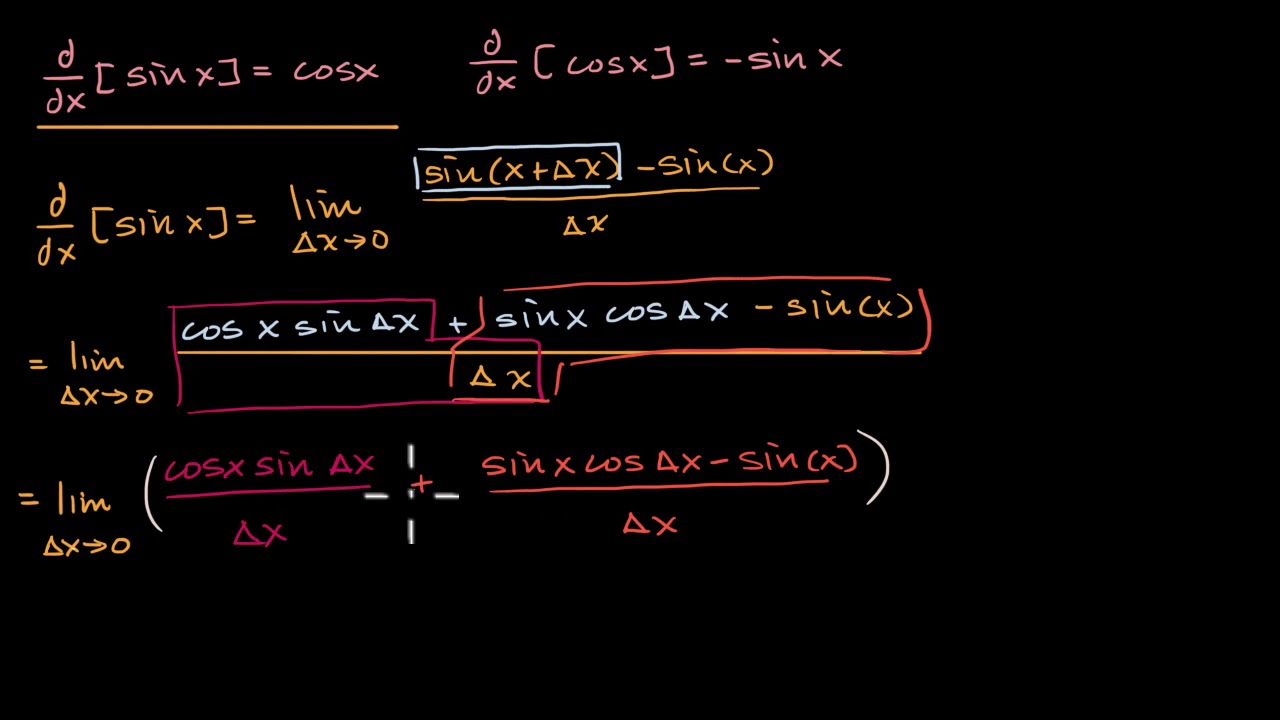 d/dx [sin x] = cos x    d/dx [cos x] = -sin x
d/dx [sin x] = lim Δx→0 (sin(x+Δx) - sin(x))/Δx
= lim Δx→0 (cos x sin Δx + sin x cos Δx - sin(x))/Δx
= lim Δx→0 ((cos x sin Δx)/Δx + (sin x cos Δx - sin(x))/Δx)